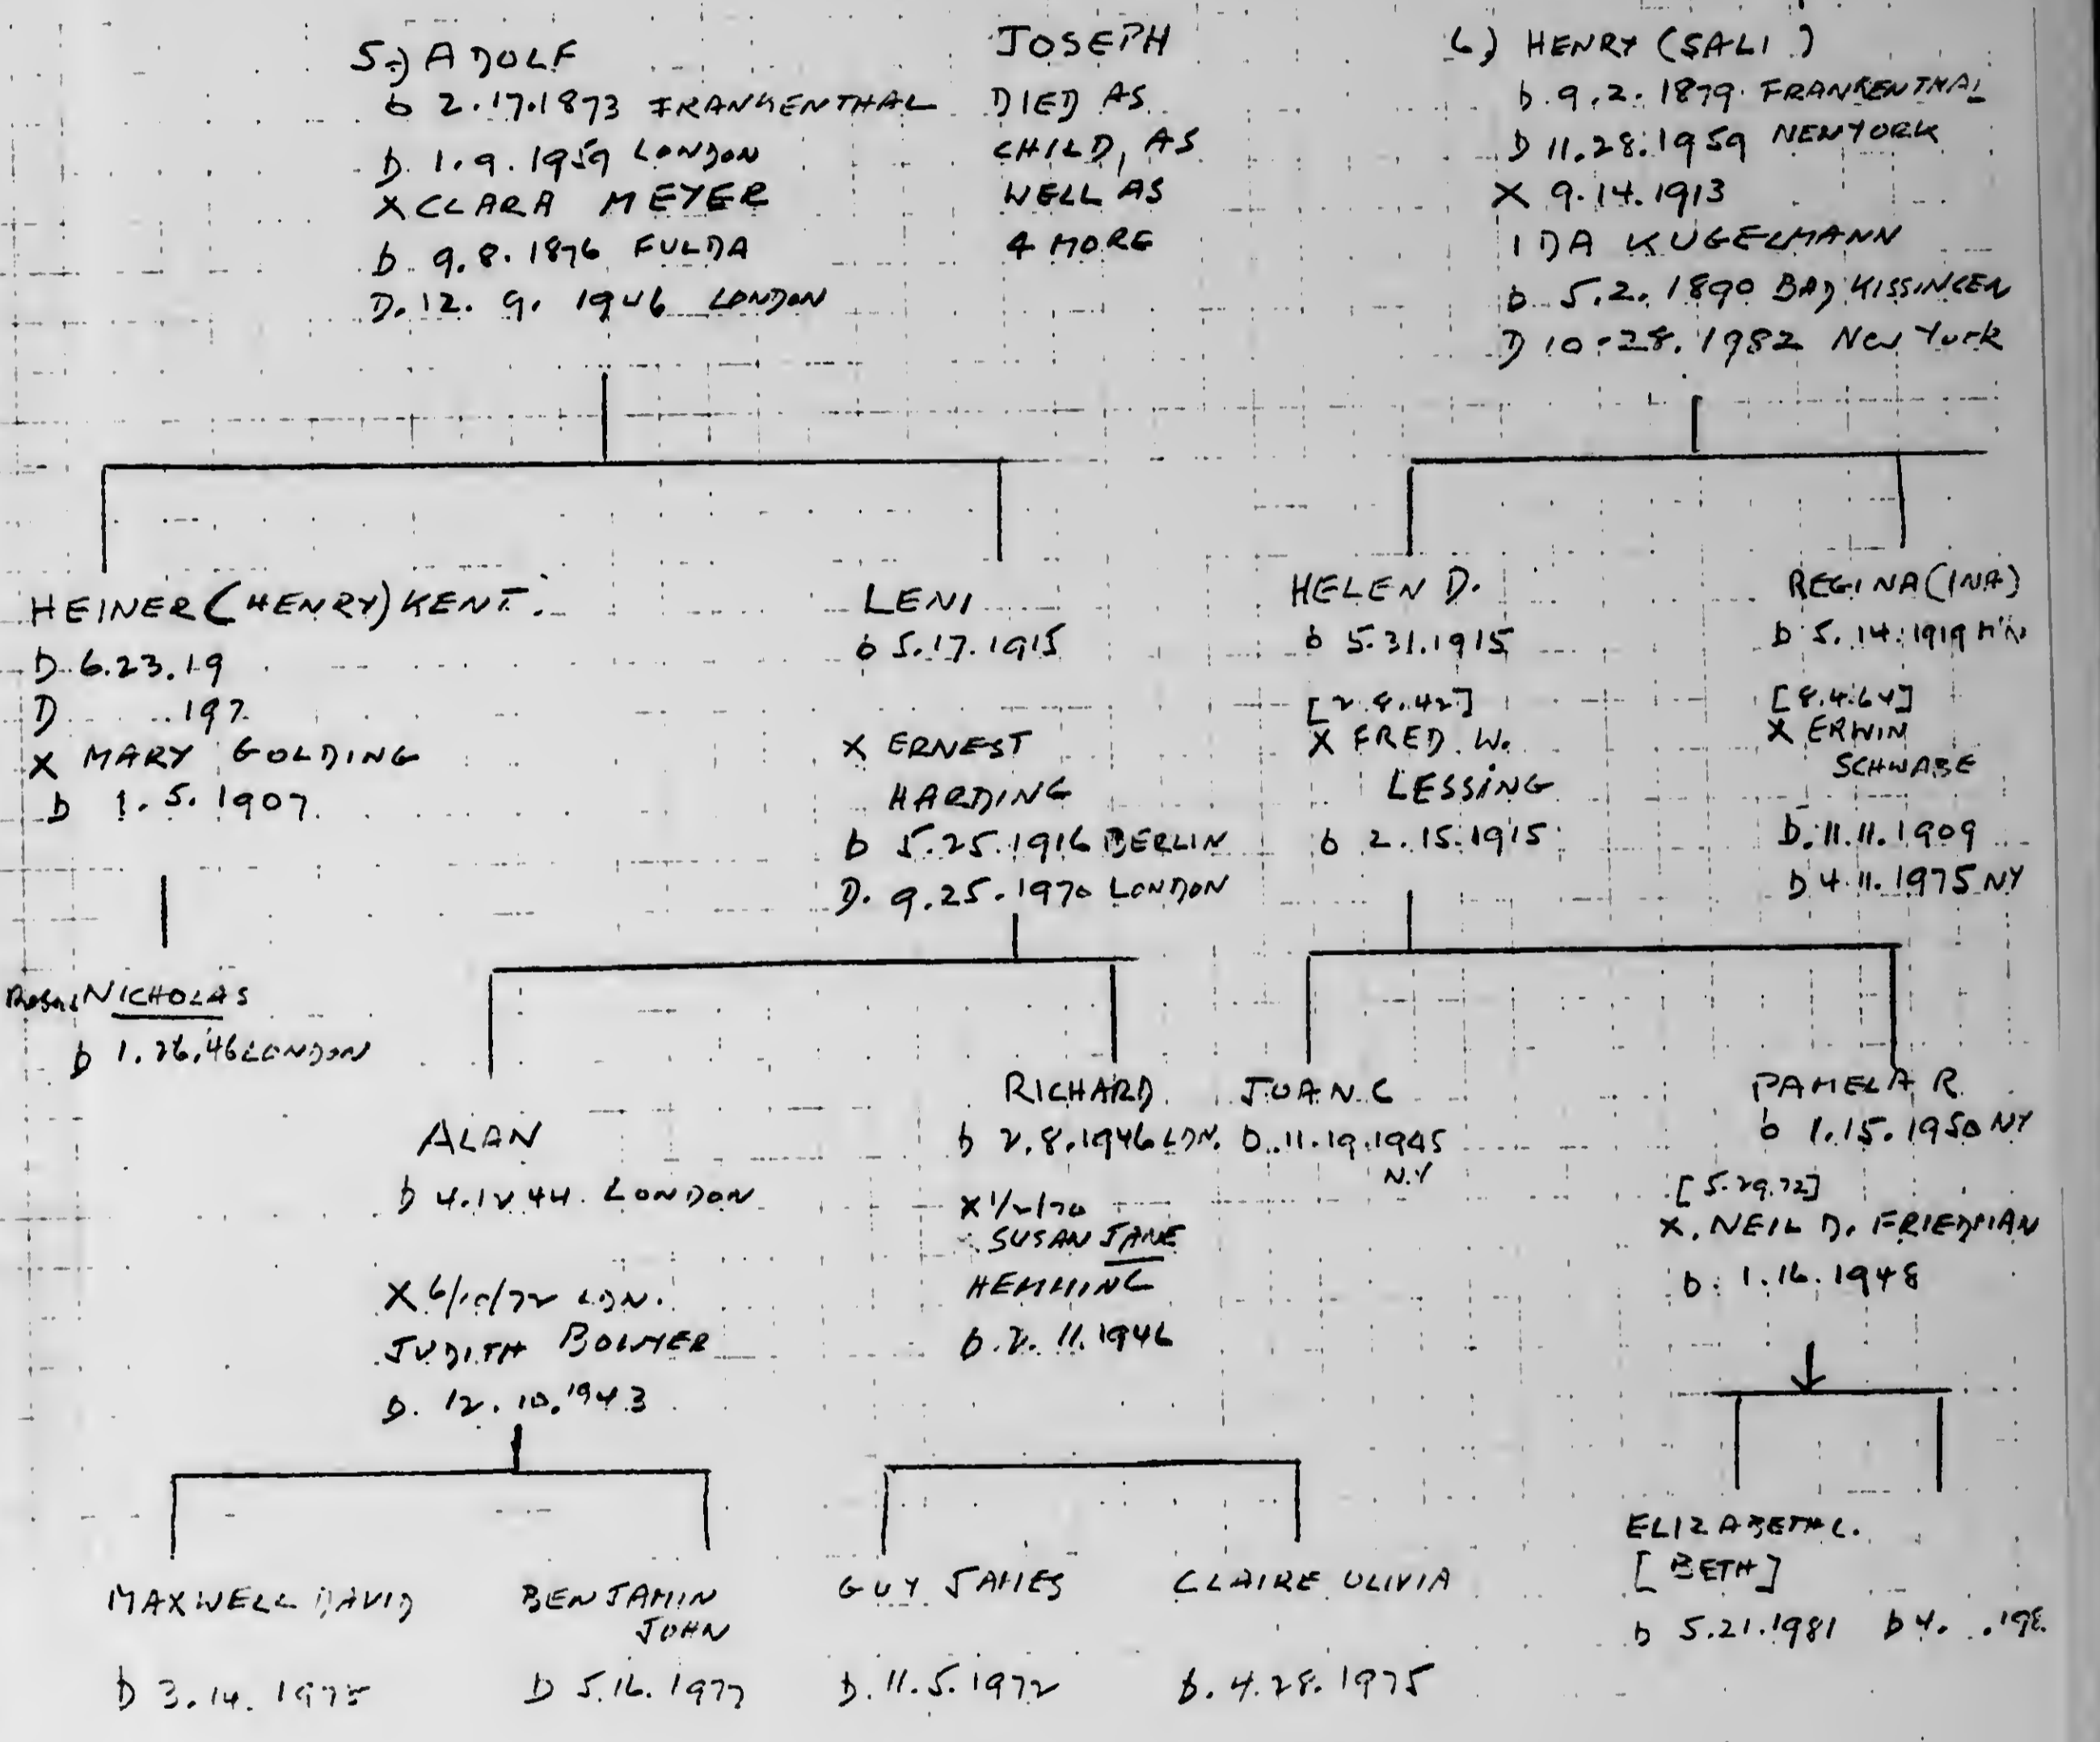 5.) ADOLF
b 2.17.1873 FRANKENTHAL
D. 1.9.1959 LONDON
X CLARA MEYER
b. 9.8.1876 FULDA
D. 12. 9. 1946 LONDON
JOSEPH
DIED AS
CHILD, AS
WELL AS
4 MORE
6) HENRY (SALI)
b. 9.2.1879 FRANKENTHAL
D 11.28.1959 NEW YORK
X 9.14.1913
IDA KUGELMANN
b 5.2.1890 BAD KISSINGEN
D 10.28.1982 New York
HEINER (HENRY) KENT.
D 6.23.19
D 197
X MARY GOLDING
b 1.5.1907.
LENI
b 5.17.1915
X ERNEST
HARDING
b 5.25.1916 BERLIN
D. 9.25.1970 LONDON
HELEN D.
b 5.31.1915
[2.8.42]
X FRED. W.
LESSING
b 2.15.1915
REGINA (INA)
b 5.14.1919
[8.4.64]
X ERWIN
SCHWABE
b. 11.11.1909
D 4.11.1975 NY
NICHOLAS
b 1.26.46 LONDON
ALAN
b 4.12 44. LONDON
X 6/10/72 LDN.
JUDITH
b. 12.10.1943
RICHARD
b 2.8.1946 LDN.
X 1/2/70
SUSAN JANE
HEMMING
b. 2. 11. 1946
JOAN C
b. 11.19.1945
N.Y
PAMELA R.
b 1.15.1950 NY
[5.29.72]
X. NEIL D. FRIEDMAN
b. 1.16.1948
MAXWELL DAVID
b 3.14.1975
BENJAMIN
JOHN
b 5.16.1977
GUY JAMES
b. 11.5.1972
CLAIRE OLIVIA
b. 4.28.1975
ELIZABETH L.
[BETH]
b 5.21.1981
b 4. .198